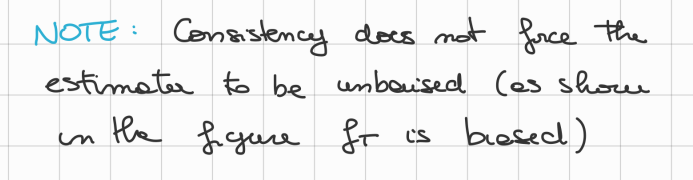 NOTE: Consistency does not force the
estimator to be unbaised (as show
in the figure f_T is biased)